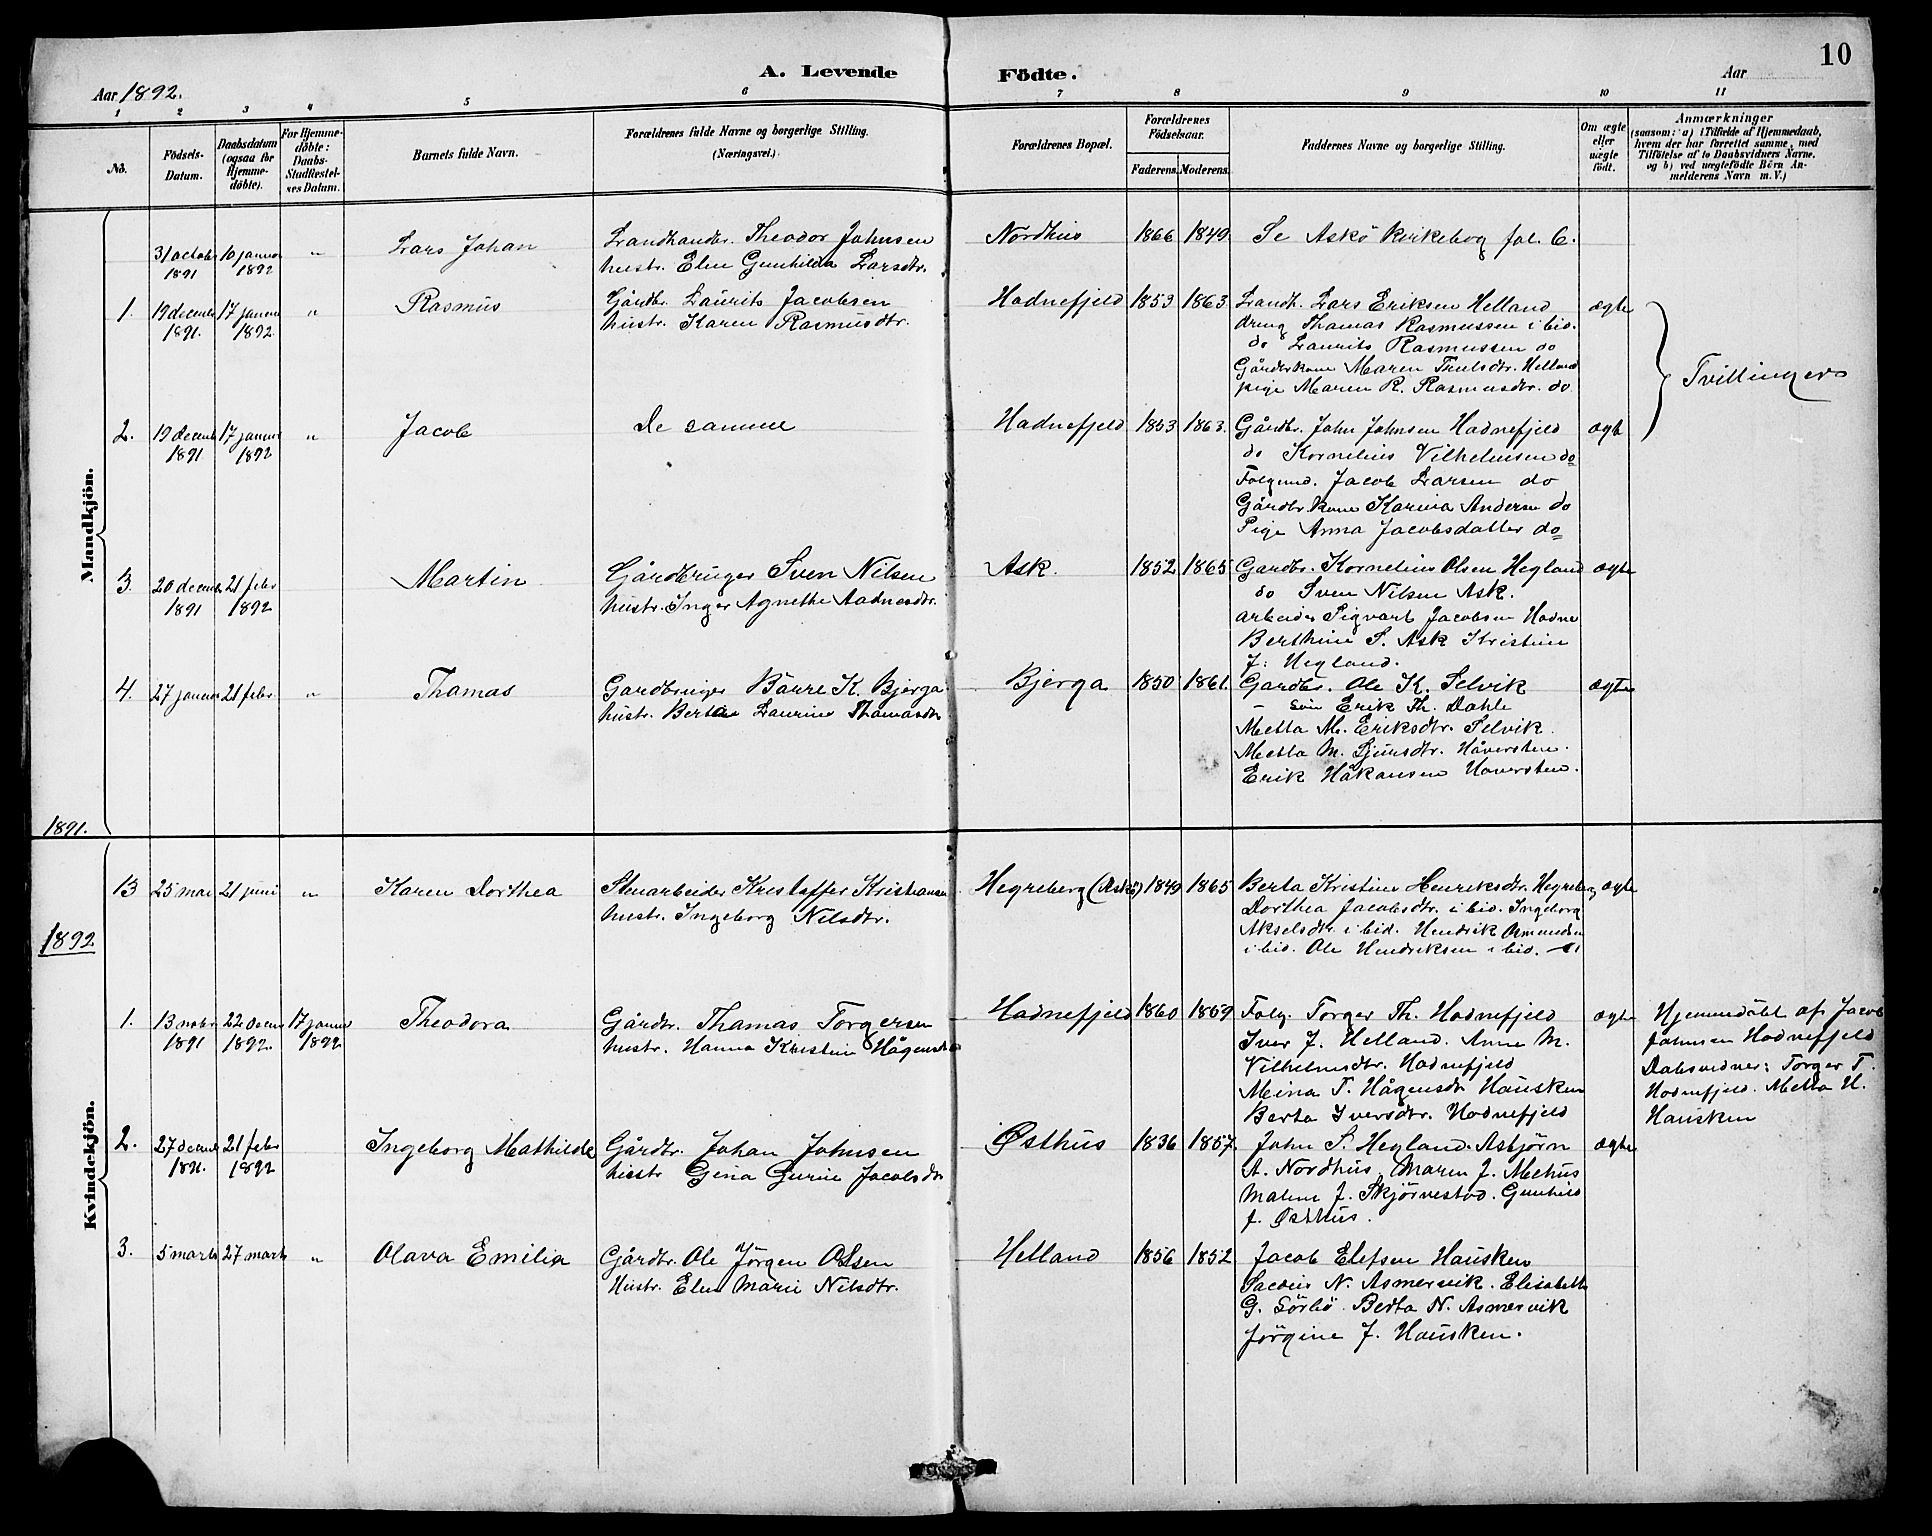 10
A. Levende Födte.
Aar 1892. Aar
1 2 3 4 5 6 7 8 9 10 11
No. Födsels-Datum. Daabsdatum (ogsaa for Hjemme-döbte). For Hjemme-döbte: Daabs-Stadfæstel-ses Datum. Barnets fulde Navn. Forældrenes fulde Navne og borgerlige Stilling. (Næringsvei.) Forældrenes Bopæl. Forældrenes Födselsaar. Faderens. Moderens. Faddernes Navne og borgerlige Stilling. Om ægte eller uægte födt. Anmærkninger (saasom: a) i Tilfælde af Hjemmedaab, hvem der har forrettet samme, med Tilföielse af to Daabsvidners Navne, og b) ved uægtefödte Börn An-melderens Navn m. V.)
Mandkjön.
31 octobr 10 januar " Lars Johan Landhandlr. Theodor Johnsen Nordhus 1866 1849 Se Askö kirkebog fol. 6.
1891 1892 hustr. Elen Gunhilda Larsdtr.
1. 19 decemb 17 januar " Rasmus Gårdbr. Laurits Jacobsen Hadnefjeld 1853 1863 Landh. Lars Eriksen Helland ægte
1891. 1892 hustr. Karen Rasmusdtr. dreng Thomas Rasmussen i bid.
do Laurits Rasmussen do
Gårdbr kone Maren Truls dtr. Helland Tvillinger
pige Maren R. Rasmusdtr. do
2. 19 decemb 17 januar " Jacob De samme Hadnefjeld 1853 1863. Gårdbr. John Johnsen Hadnefjeld ægte
1891 1892 do Kornelius Vilhelmsen do
Folgmd. Jacob Larsen do
Gårdbr. kone Karina Andersn do
Pige Anna Jacobsdatter do
3. 20 decemb 21 febr " Martin Gårdbruger Sven Nilsen Ask. 1852 1865 Gardbr. Kornelius Olsen Hegland ægte
1891 1892 hustr. Inger Agnethe Aadnesdtr. do Sven Nilsen Ask.
arbeider Sigvart Jacobsen Hadne
Berthine S. Ask Kristine
J. Hegland.
4. 27 januar 21 febr " Thomas Gardbruger Bårre K. Bjerga Bjerga 1850 1861. Gardbr. Ole K. Selvik ægte
hustr. Berta Laurine Thomasdtr – Erik Th. Dahle
Metta M. Eriksdtr. Selvik.
Metta M. Sjursdtr. Håversten.
Erik Håkonsen Haversten.
1891.
Kvindekjön.
13 25 mai 21 juni " Karen Dorthea Stenarbeider Kristoffer Kristiansen Hegreberg (Askö) 1849 1865 Berta Kristine Henriksdtr. Hegreberg ægte
hustr. Ingeborg Nilsdtr. Dorthea Jacobsdtr. i bid. Ingeborg
1892. Akselsdtr i bid. Hendrik Osmundsen
i bid. Ole Hendriksen i bid.
1. 13 nobr 22 Decm 17 januar Theodora Gårdbr. Thomas Torgersen Hadnefjeld 1860 1859 Folg. Torger Th. Hadnefjeld ægte Hjemmedöbt af Jacob
1891 1892. 1892 hustr. Hanna Kristine Hågensdtr Iver J. Helland. Anne M. Johnsen Hadnefjeld
Vilhelmsdtr. Hadnefjeld Dabsvidner: Torger T.
Meina T. Hågensdtr Hausken Hadnefjeld. Metta H.
Berta Iversdtr. Hadnefjeld Hausken
2. 27 decemb 21 febr Ingeborg Mathilde Gårdbr. Johan Johnsen Østhus 1836 1857. John S. Hegland. Asbjörn ægte
1891. 1892 hustr Gina Gurine Jacobsdtr A. Nordhus. Maren J. Mehus
Malene J. Skjörvestad. Gunhild
J. Østhus.
3. 5 marts 27 marts " Olava Emilia Gårdbr. Ole Jörgen Olsen Helland 1856 1852 Jacob Elefsen Hausken
Hustr. Elen Marie Nilsdtr. N. Asmervik. Elisabeth
G. Sörbö. Berta N. Asmervik
Jörgine J. Hausken.